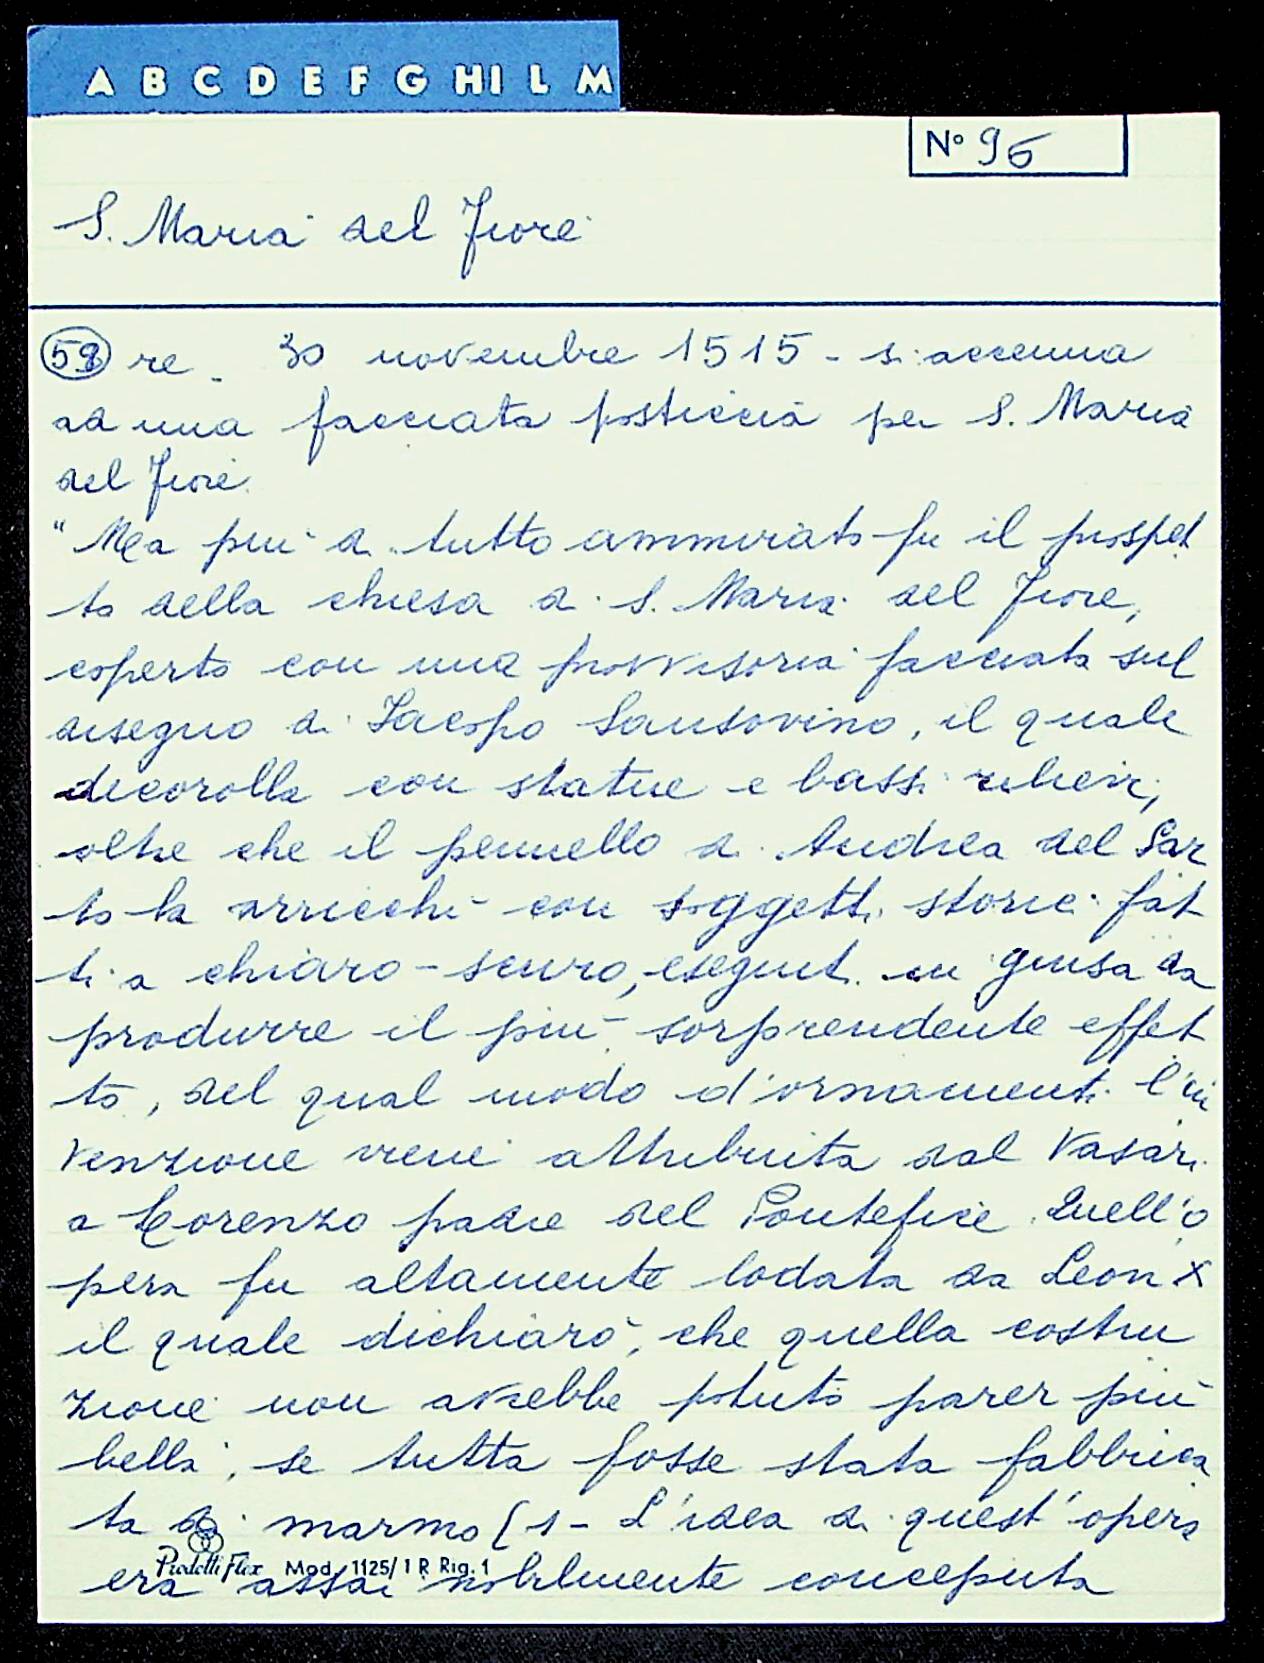 A B C D E F G H I L M
N° 96
S. Maria del Fiore
58 re - 30 novembre 1515 - si accenna
ad una facciata posticcia per S. Maria
del Fiore.
"Ma più di tutto ammirato fu il prospet
to della chiesa di S. Maria del Fiore,
coperto con una provvisoria facciata sul
disegno di Iacopo Sansovino, il quale
decorolla con statue e bassi rilievi,
oltre che il pennello di Andrea del Sar
to la arricchì con soggetti storici fat
ti a chiaro-scuro, eseguiti in guisa da
produrre il più sorprendente effet
to, del qual modo d'ornamenti l'in
venzione viene attribuita dal Vasari
a Lorenzo padre del Pontefice. Quell'o
pera fu altamente lodata da Leon X
il quale dichiarò, che quella costru
zione non avrebbe potuto parer più
bella, se tutta fosse stata fabbrica
ta di marmo (1 - L'idea di quest'opera
Prodotti Flex Mod. 1125/1 R Rig. 1
era assai nobilmente concepita